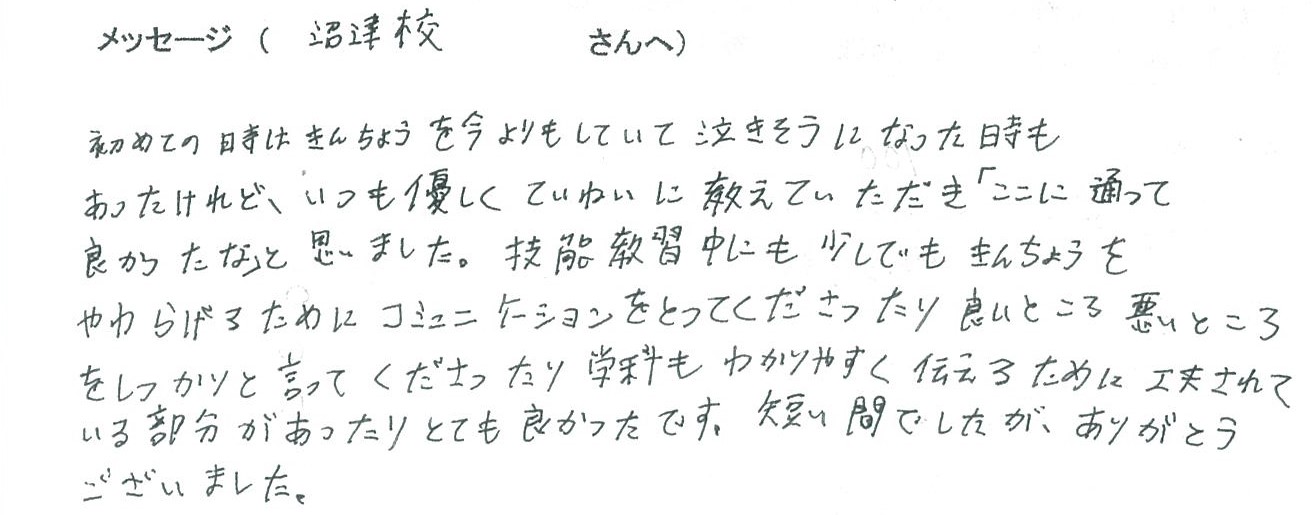 メッセージ ( 沼津校 さんへ)
初めての時はきんちょうを今よりもしていて泣きそうになった時も
あったけれど、いつも優しくていねいに教えていただき「ここに通って
良かったな」と思いました。技能教習中にも少しでもきんちょうを
やわらげるためにコミュニケーションをとってくださったり良いところ悪いところ
をしっかりと言ってくださったり学科もわかりやすく伝えるために工夫されて
いる部分があったりとても良かったです。短い間でしたが、ありがとう
ございました。